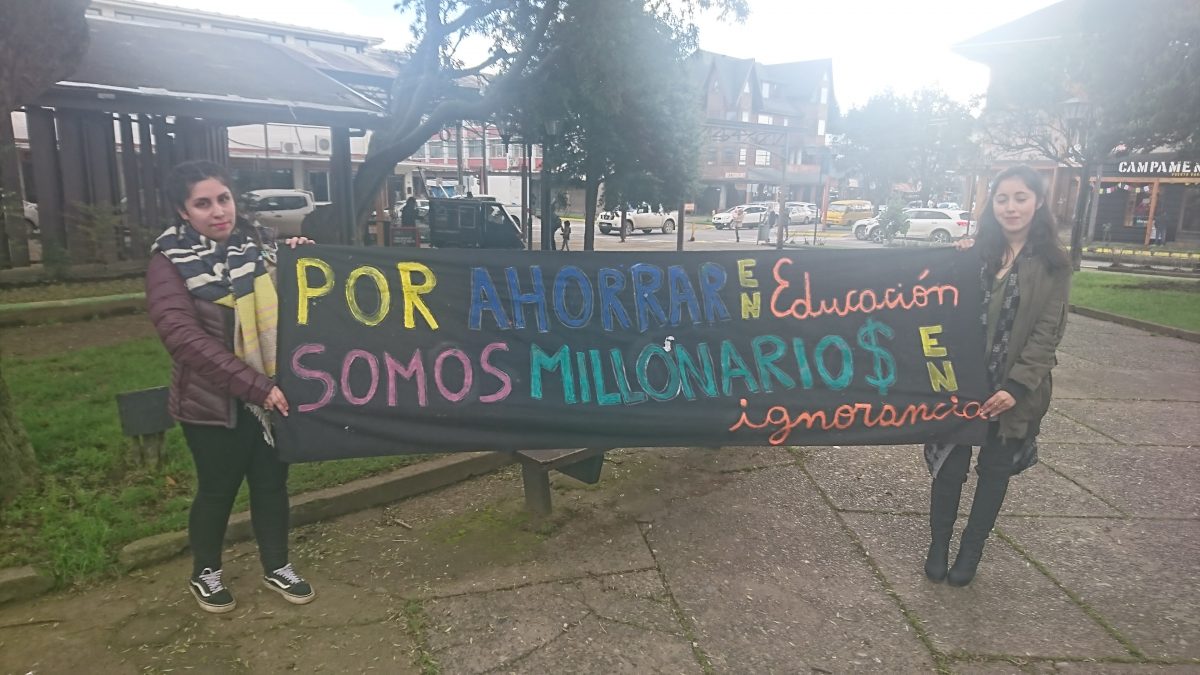 POR AHORRAR EN Educación
SOMOS MILLONARIO$ EN
ignorancia
CAMPAME